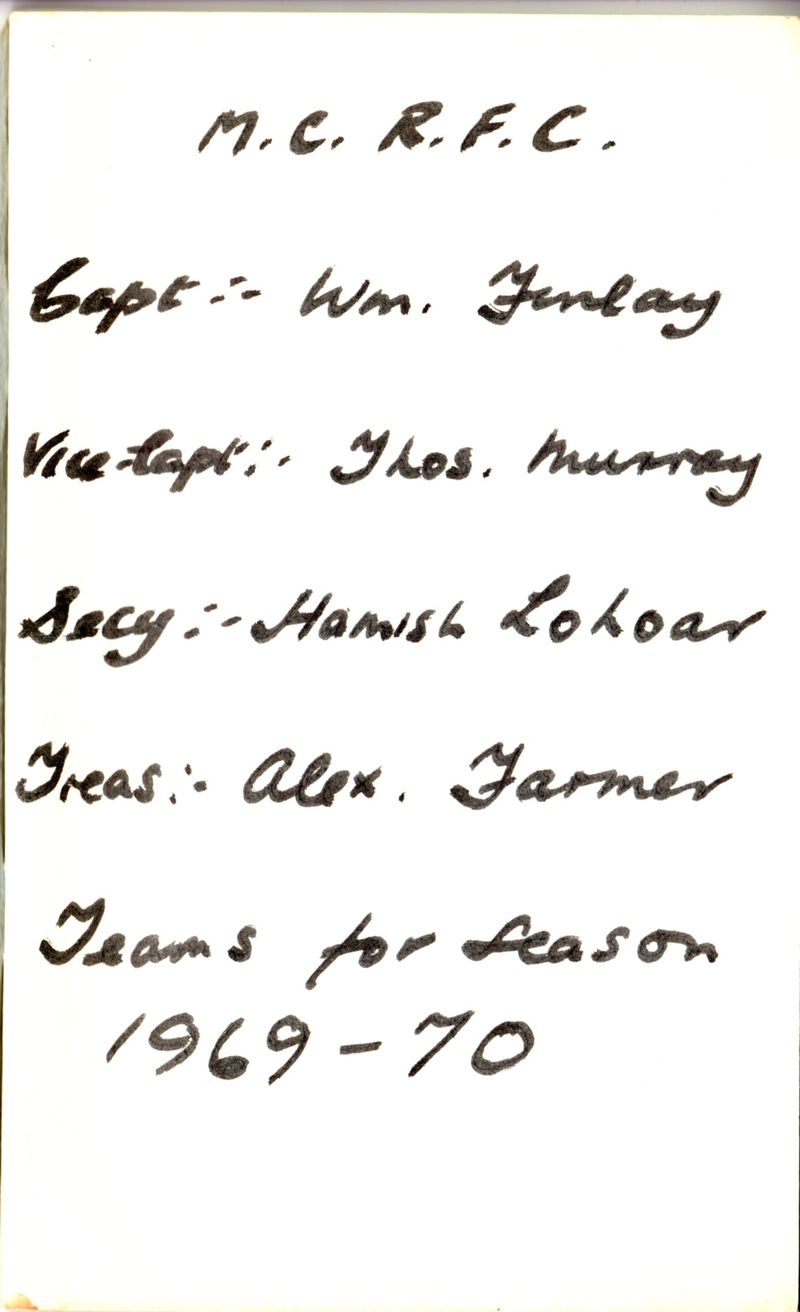 M.C. R.F.C.
Capt:- Wm. Finlay
Vice-Capt:- Thos. Murray
Secy:- Hamish Lohoar
Treas:- Alex. Farmer
Teams for Season
1969-70